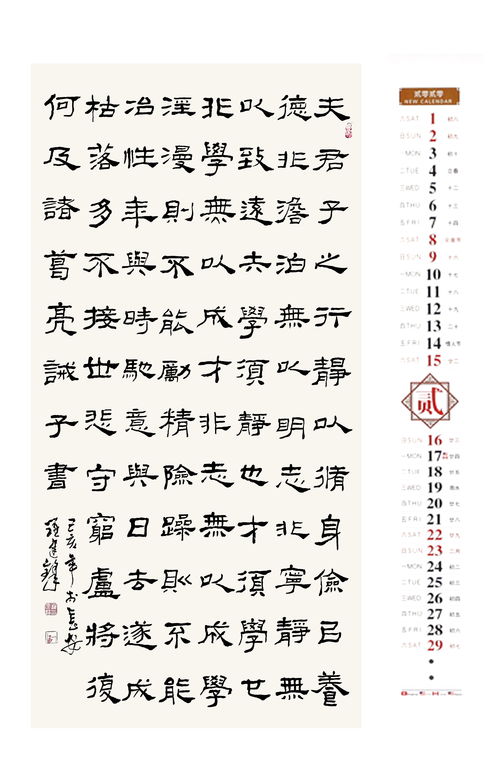 夫君子之行靜以脩身儉已養
德非澹泊無以明志非寧靜無
以致遠夫學須靜也才須學也
非學無以成才非志無以成學
淫漫則不能勵精險躁則不能
冶性年與時馳意與日去遂成
枯落多不接世悲守窮盧將復
何及諸葛亮誡子書
己亥年於長安
貳零貳零
NEW CALENDAR
六 SAT 1 初八
日 SUN 2 初九
一 MON 3 初十
二 TUE 4 立春
三 WED 5 十二
四 THU 6 十三
五 FRI 7 十四
六 SAT 8 元宵节
日 SUN 9 十六
一 MON 10 十七
二 TUE 11 十八
三 WED 12 十九
四 THU 13 二十
五 FRI 14 情人节
六 SAT 15 廿二
贰
日 SUN 16 廿三
一 MON 17 廿四
二 TUE 18 廿五
三 WED 19 雨水
四 THU 20 廿七
五 FRI 21 廿八
六 SAT 22 廿九
日 SUN 23 二月
一 MON 24 初二
二 TUE 25 初三
三 WED 26 初四
四 THU 27 初五
五 FRI 28 初六
六 SAT 29 初七